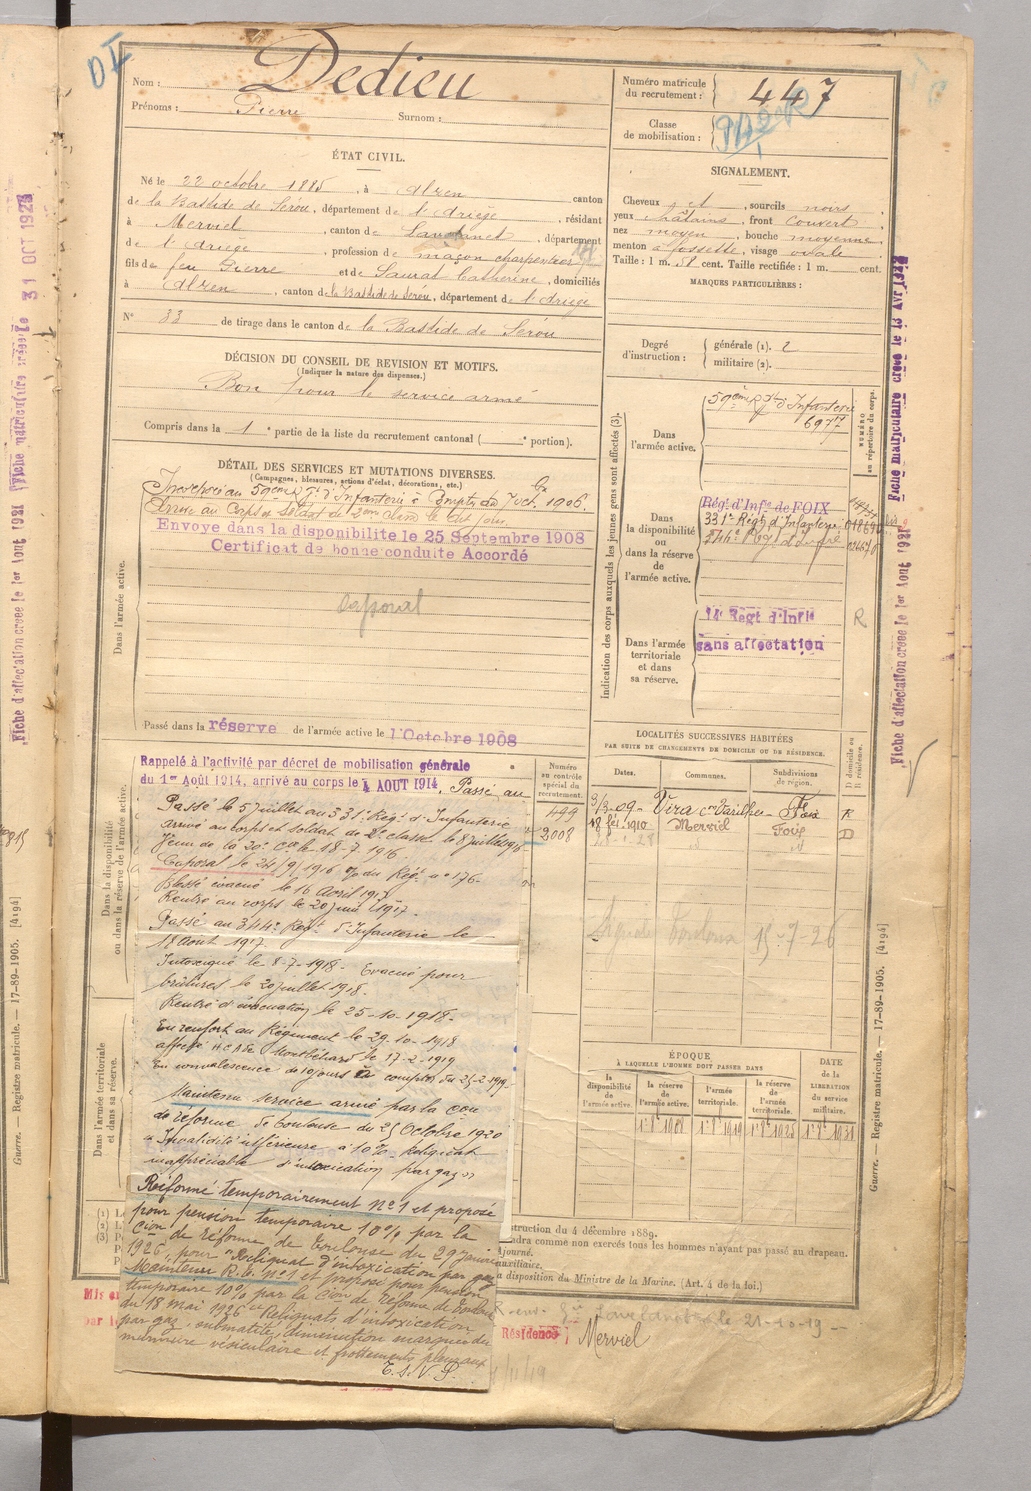 DI
Nom : Dedieu
Prénoms : Pierre Surnom :
Numéro matricule du recrutement : 447
Classe de mobilisation :
ÉTAT CIVIL.
Né le 22 octobre 1885, à Alzen canton
de la Bastide de Sérou, département de l'Ariège, résidant
à Merviel, canton de Lavelanet, département
de l'Ariège, profession de maçon charpentier
fils de feu Pierre et de Saurat Catherine, domiciliés
à Alzen, canton de la Bastide de Sérou, département de l'Ariège
N° 33 de tirage dans le canton de la Bastide de Sérou
SIGNALEMENT.
Cheveux et sourcils noirs,
yeux châtains, front couvert,
nez moyen, bouche moyenne,
menton à fossette, visage ovale
Taille : 1 m. 58 cent. Taille rectifiée : 1 m. cent.
MARQUES PARTICULIÈRES :
Degré d'instruction : générale (1). 2
militaire (2).
DÉCISION DU CONSEIL DE REVISION ET MOTIFS.
(Indiquer la nature des dispenses.)
Bon pour le service armé
Compris dans la 1e partie de la liste du recrutement cantonal ( e portion).
DÉTAIL DES SERVICES ET MUTATIONS DIVERSES.
(Campagnes, blessures, actions d'éclat, décorations, etc.)
Incorporé au 59ème Rgt d'Infanterie à Compter du 7 oct. 1906.
Arrivé au Corps et Soldat de 2ème classe le dit jour.
Envoye dans la disponibilite le 25 Septembre 1908
Certificat de bonne conduite Accordé
Caporal
Dans l'armée active.
Passé dans la réserve de l'armée active le 1 Octobre 1908
Indication des corps auxquels les jeunes gens sont affectés (3).
NUMÉRO au répertoire du corps.
Dans l'armée active.
59ème Rgt d'Infanterie
6977
Dans la disponibilité ou dans la réserve de l'armée active.
Régt d'Infie de FOIX
331e Régt d'Infanterie
344e Régt d'Infrie
Dans l'armée territoriale et dans sa réserve.
14 Regt d'Infie
sans affectation
R
LOCALITÉS SUCCESSIVES HABITÉES
PAR SUITE DE CHANGEMENTS DE DOMICILE OU DE RÉSIDENCE.
Dates. Communes. Subdivisions de région. D domicile ou R résidence.
3/3-09 Vira con Varilhes Foix R
18 fév. 1910 Merviel Foix D
28-1-28
15-7-26
Dans la disponibilité ou dans la réserve de l'armée active.
Numéro au contrôle spécial du recrutement.
499
2008
Rappelé à l'activité par décret de mobilisation générale
du 1er Août 1914, arrivé au corps le 4 AOUT 1914. Passé au
Passé le 5 juillet au 331e Régt d'Infanterie
arrivé au corps et soldat de 2e classe le 8 juillet 1916
Venu de la 20e Cie le 18-7-1916.
Caporal le 24/9/1916 o/ du Régt n° 176.
Blessé évacué le 16 Avril 1917
Rentré au corps le 20 juin 1917.
Passé au 344e Régt d'Infanterie le
18 Aout 1917.
Intoxiqué le 8-7-1918. Evacué pour
brûlures le 20 juillet 1918.
Rentré d'évacuation le 25-10-1918.
En renfort au Régiment le 29-10-1918
affecté Montbéliard le 17-2-1919
En convalescence de 10 jours à compter du 25-2-1919.
Maintenu service armé par la Con
de réforme de Toulouse du 25 Octobre 1920
"Invalidité inférieure à 10% Reliquat
inappréciable d'intoxication par gaz"
Réformé temporairement N°1 et proposé
pour pension temporaire 10% par la
Cion de réforme de Toulouse du 29 janvier
1925, pour "Reliquat d'intoxication par gaz
Maintenu R.t. N°1 et proposé pour pension
temporaire 10% par la Cion de Réforme de Toulouse
du 18 mai 1926 "Reliquats d'intoxication
par gaz, submatité, diminution marquée du
murmure vésiculaire et frottements pleuraux
T.S.V.P.
Dans l'armée territoriale et dans sa réserve.
ÉPOQUE
À LAQUELLE L'HOMME DOIT PASSER DANS
la disponibilité de l'armée active. la réserve de l'armée active. l'armée territoriale. la réserve de l'armée territoriale. DATE de la LIBÉRATION du service militaire.
struction du 4 décembre 1889.
ndra comme non exercés tous les hommes n'ayant pas passé au drapeau.
Ajourné.
auxiliaire.
à disposition du Ministre de la Marine. (Art. 4 de la loi.)
le 21-10-19
Résidence Merviel
Mis en
par le
Guerre. — Registre matricule. — 17-89-1905. [4194]
Fiche matriculaire créée le 13 Avr 1928
Fiche d'affectation creee le 1er Aout 1921
Fiche matriculaire créée le 31 OCT 1928
Fiche d'affectation creee le 1er Aout 1921
Guerre. — Registre matricule. — 17-89-1905. [4194]